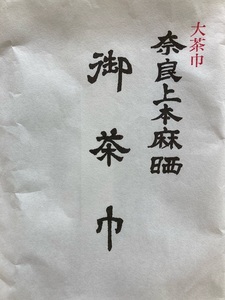 大茶巾
奈良上本麻晒
御茶巾